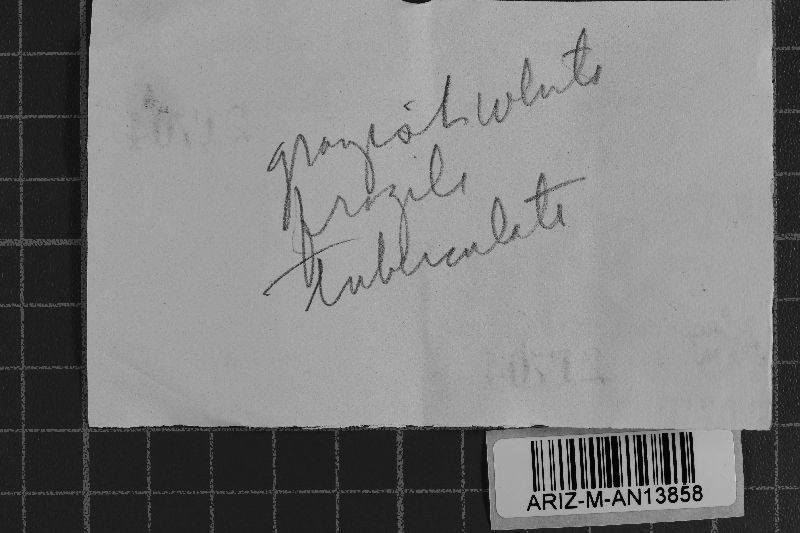 grayish white
fragile
tuberculate
21704
ARIZ-M-AN13858